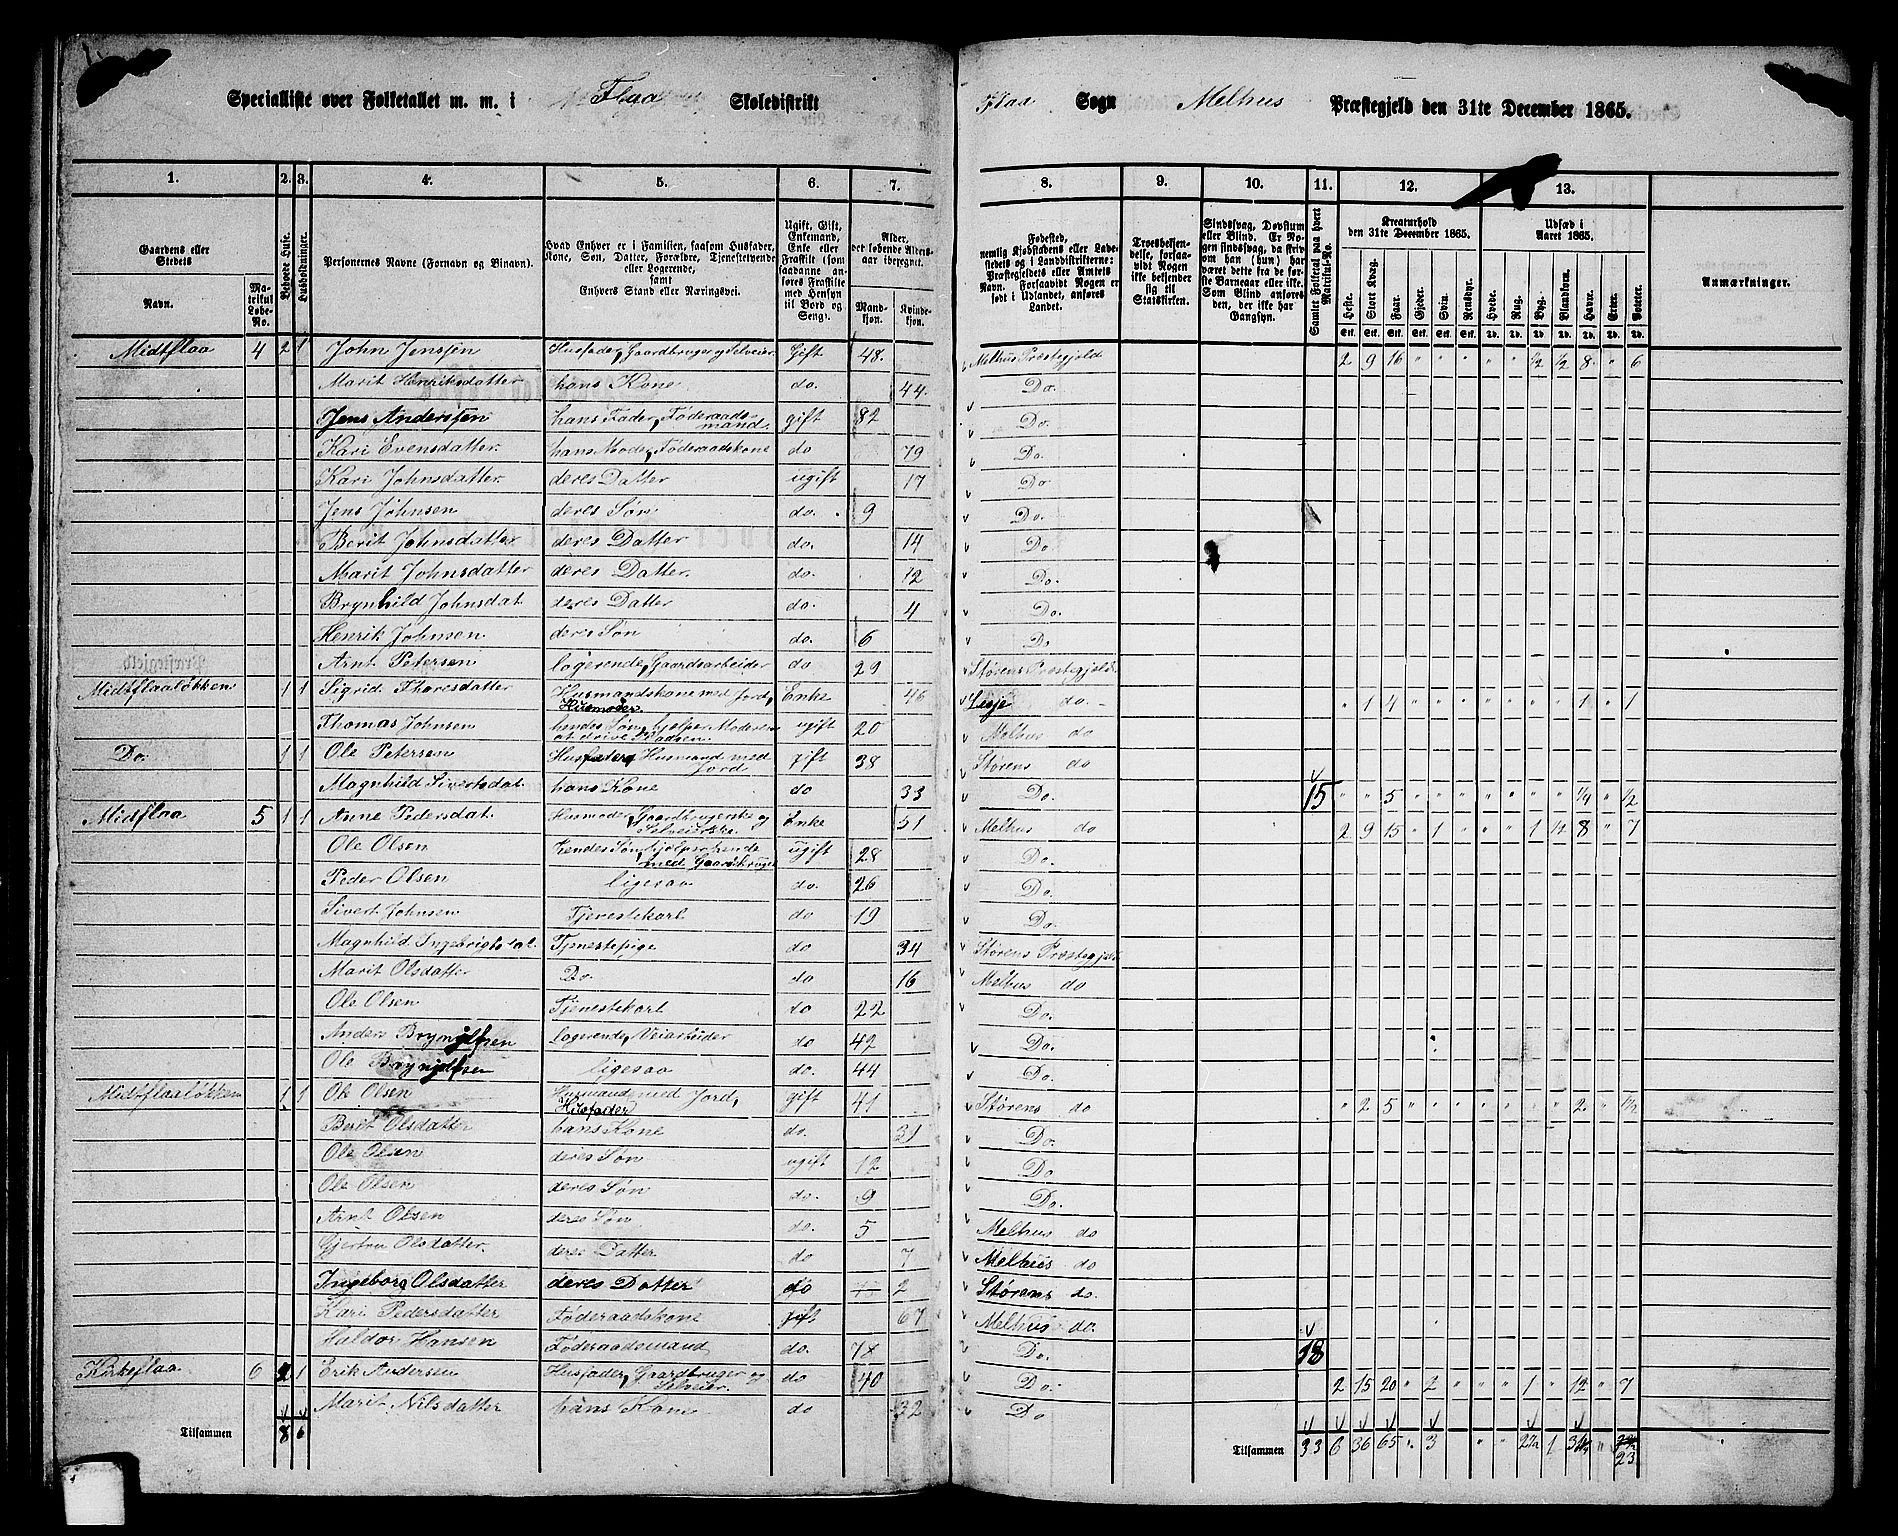 Specialliste over Folketallet m. m. i Flaa Skoledistrikt Flaa Sogn Melhus Præstegjeld den 31te December 1865.
1. 2. 3. 4. 5. 6. 7. 8. 9. 10. 11. 12. 13.
Gaardens eller Stedets Navn. Matrikul Løbe-No. Beboede Huse. Husholdninger. Personernes Navne (Fornavn og Binavn). Hvad Enhver er i Familien, saasom Husfader, Kone, Søn, Datter, Forældre, Tjenestetyende eller Logerende, samt Enhvers Stand eller Næringsvei. Ugift, Gift, Enkemand, Enke eller Fraskilte (som saadanne anføres Fraskilte med Hensyn til Bord og Seng). Alder, det løbende Alders-aar iberegnet. Mand-kjøn. Kvinde-kjøn.
Fødested, nemlig Kjøbstadens eller Ladestedets og i Landdistrikterne: Præstegjeldets eller Amtets Navn. Forsaavidt Nogen er født i Udlandet, anføres Landet. Troesbekjendelse, forsaavidt Nogen ikke bekjender sig til Statskirken. Sindssvag, Døvstum eller Blind. Er Nogen sindssvag, da skrives om han (hun) har været dette fra de første Barneaar eller ikke. Som Blind anføres den, der ikke har Gangsyn. Samlet Folketal paa hvert Matrikul-No. Kreaturhold den 31te December 1865. Udsæd i Aaret 1865. Anmærkninger.
Heste. Stort Kvæg. Faar. Gjeder. Svin. Rensdyr. Hvede. Rug. Byg. Blandkorn. Havre. Erter. Poteter.
Stk. Stk. Stk. Stk. Stk. Stk. Td. Td. Td. Td. Td. Td. Td.
Midtflaa 4 2 1 John Jenssen Husfader, Gaardbruger og Selveier Gift 48. Melhus Præstegjeld 2 9 16 " " " " " ½ ½ 8 " 6
Marit Henriksdatter hans Kone do. 44. Do.
Jens Anderssen hans Fader, Føderaadsmand. gift 82 Do.
Kari Evensdatter hans Moder, Føderaadskone do 79 Do.
Kari Johnsdatter deres Datter ugift 17 Do
Jens Johnsen deres Søn do. 9 Do.
Berit Johnsdatter deres Datter do. 14 Do
Marit Johnsdatter deres Datter. do. 12 Do.
Brynhild Johnsdat. deres Datter do. 4 Do.
Henrik Johnsen deres Søn do. 6 Do
Arnt Petersen logerende, Gaardsarbeider do 29 Størens Præstegjeld
Midtflaaløkken 1 1 Sigrid Thoresdatter Husmandskone med Jord, Husmoder Enke 46 Lesje do. " 1 4 " " " " " " " 1 " 1
Thomas Johnsen hendes Søn, hjelper Moderen at drive Pladsen ugift 20 Melhus do
Do. 1 1 Ole Petersen Husfader, Husmand med Jord gift 38 Størens do
Magnhild Sivertsdat. hans Kone do 33 Do. 15 " " 5 " " " " " " " ¼ " ½
Midflaa 5 1 1 Anne Pedersdat. Husmoder, Gaardbrugerske og Selveierske Enke 51 Melhus do 2 9 15 " 1 " " " 1 ½ 8 " 7
Ole Olsen hendes Søn, hjelper hende med Gaardsbruget ugift 28 Do.
Peder Olsen ligesaa do. 26 Do.
Sivert Johnsen Tjenestekarl do 19 Do.
Magnhild Ingebrigtsdat. Tjenestepige do 34 Størens Præstegjeld
Marit Olsdatter Do. do 16 Melhus do
Ole Olsen Tjenestekarl do 22 Do.
Anders Brynjelfsen logerende, Veiarbeider do. 42 Do.
Ole Brynjelfsen ligesaa do. 44 Do.
Midtflaaløkken 1 1 Ole Olsen Husmand med Jord, Husfader gift 41 Størens do " 2 5 " " " " " " " 2 " 1½
Berit Olsdatter hans Kone do. 31 Do.
Ole Olsen deres Søn ugift 12 Do
Ole Olsen deres Søn do. 9 Do.
Arnt Olsen deres Søn do. 5 Melhus do
Gjertru Olsdatter. deres Datter do 7 Melhus do
Ingeborg Olsdatter deres Datter do 2 Størens do.
Kari Pedersdatter Føderaadskone gift 67 Melhus do.
Haldor Hansen Føderaadsmand do. 78 Do. 18
Kirkeflaa 6 2 1 Erik Andersen Husfader, Gaardbruger og Selveier. do 40 Do. 2 15 20 " 2 " " " 1 " 12 " 7
Marit Nilsdatter hans Kone do 32 Do
Tilsammen 8 6 Tilsammen 33 6 36 65 " 3 " " " 2½ 1 " 23